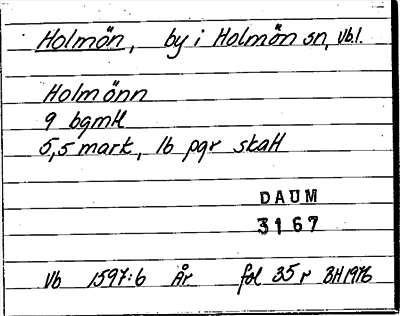 Holmön, by i Holmön sn, Vb.l.
Holmönn
9 bgmtl
5,5 mark, 1b pgr skatt
DAUM
3167
Vb 1597:6 År fol 35 r BH 1976